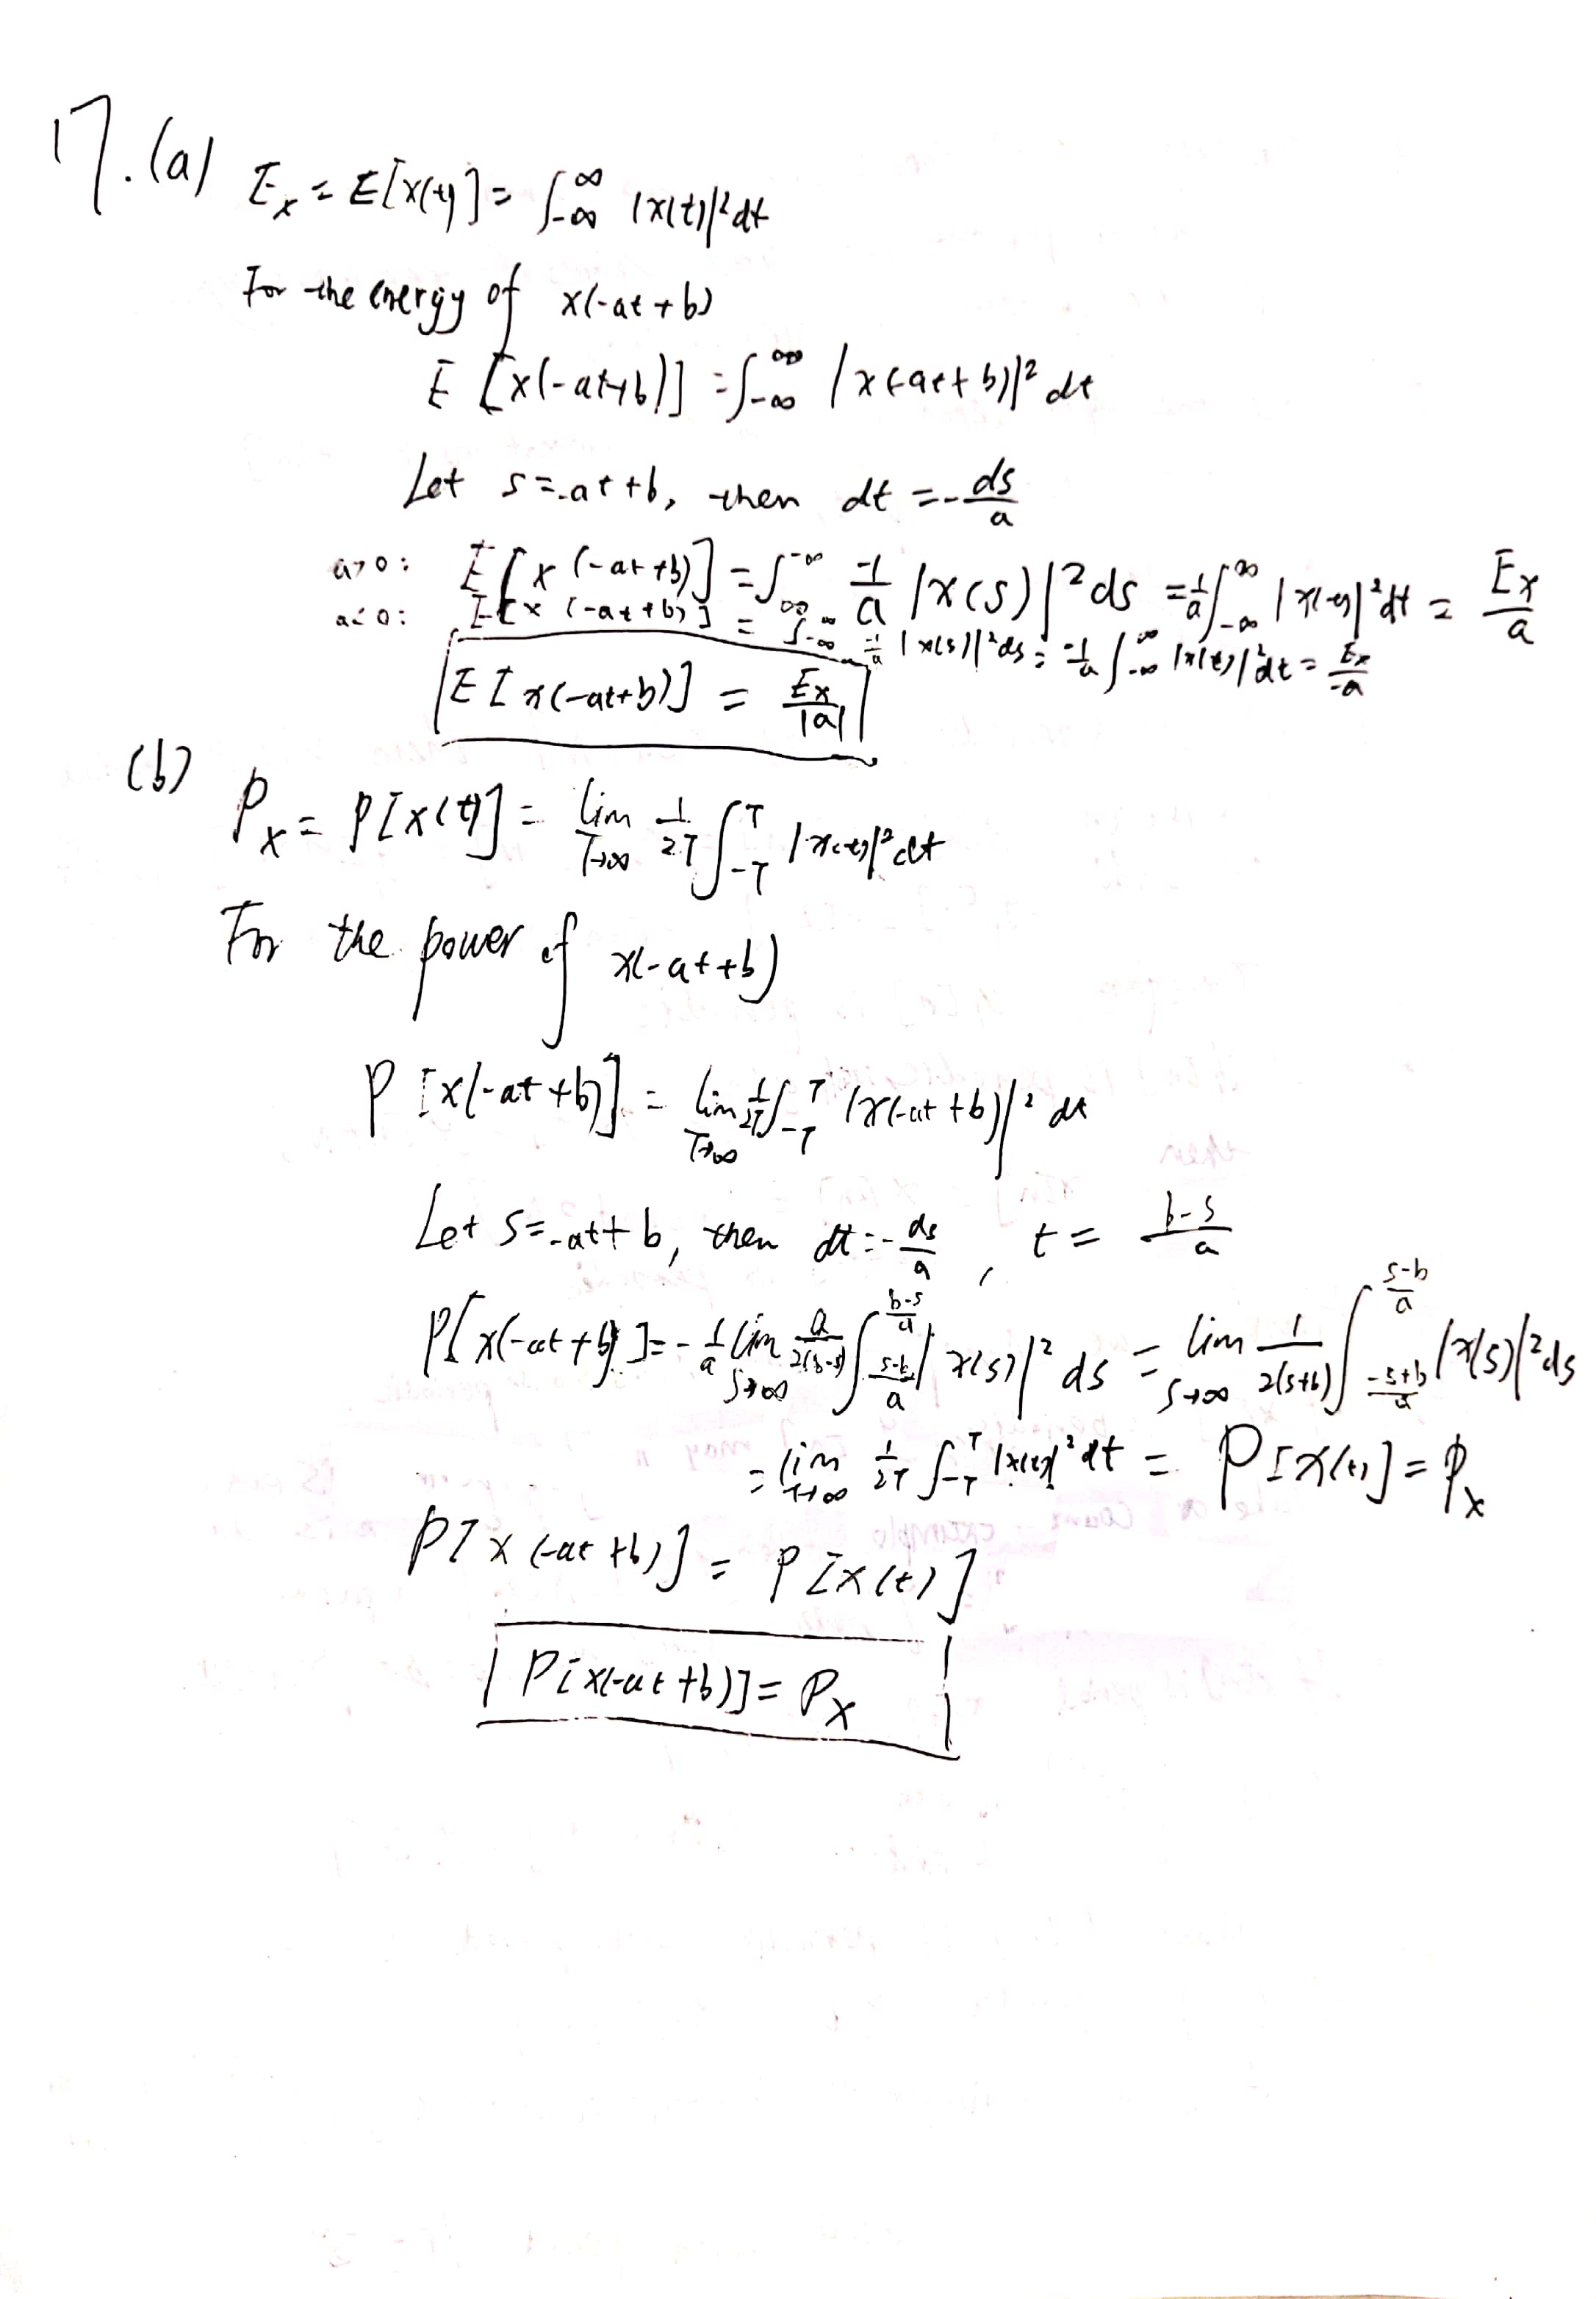 17. (a) E_x = E[x(t)] = ∫_{-∞}^{∞} |x(t)|² dt
For the energy of x(-at+b)
E[x(-at+b)] = ∫_{-∞}^{∞} |x(-at+b)|² dt
Let s=-at+b, then dt = -ds/a
a>0: E[x(-at+b)] = ∫_{∞}^{-∞} -1/a |x(s)|² ds = 1/a ∫_{-∞}^{∞} |x(t)|² dt = E_x/a
a<0: E[x(-at+b)] = ∫_{-∞}^{∞} -1/a |x(s)|² ds = -1/a ∫_{-∞}^{∞} |x(t)|² dt = E_x/-a
E[x(-at+b)] = E_x/|a|
(b) P_x = P[x(t)] = lim_{T→∞} 1/2T ∫_{-T}^{T} |x(t)|² dt
For the power of x(-at+b)
P[x(-at+b)] = lim_{T→∞} 1/2T ∫_{-T}^{T} |x(-at+b)|² dt
Let s=-at+b, then dt=-ds/a, t = b-s/a
P[x(-at+b)] = -1/a lim_{s→∞} a/2(b-s) ∫_{s-b/a}^{b-s/a} |x(s)|² ds = lim_{s→∞} 1/2(s+b) ∫_{-s+b/a}^{s-b/a} |x(s)|² ds
= lim_{T→∞} 1/2T ∫_{-T}^{T} |x(t)|² dt = P[x(t)] = P_x
P[x(-at+b)] = P[x(t)]
P[x(-at+b)] = P_x